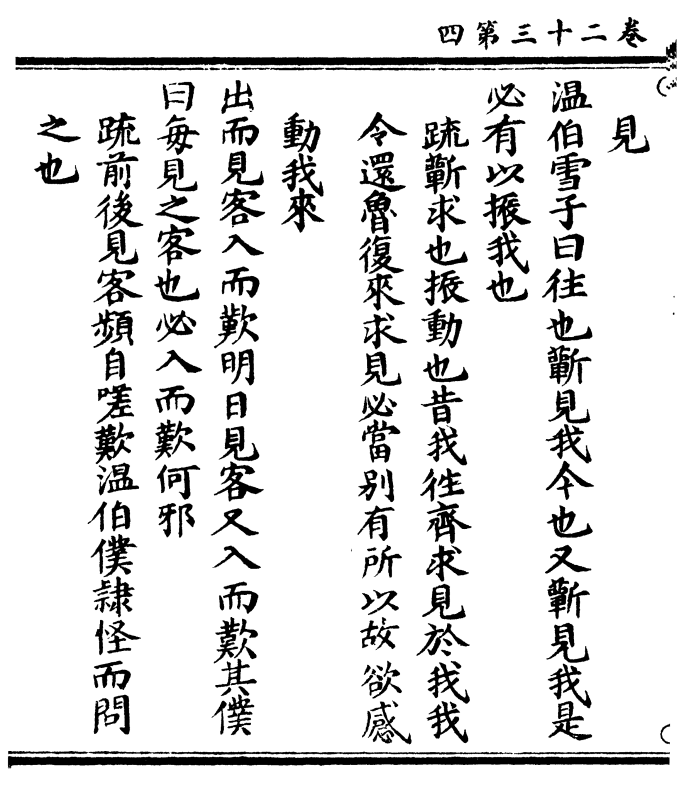 卷二十三第四
見
温伯雪子曰往也蘄見我今也又蘄見我是
必有以振我也
疏蘄求也振動也昔我往齊求見於我我
令還魯復來求見必當别有所以故欲感
動我來
出而見客入而歎明日見客又入而歎其僕
曰每見之客也必入而歎何邪
疏前後見客頻自嗟歎温伯僕隷怪而問
之也